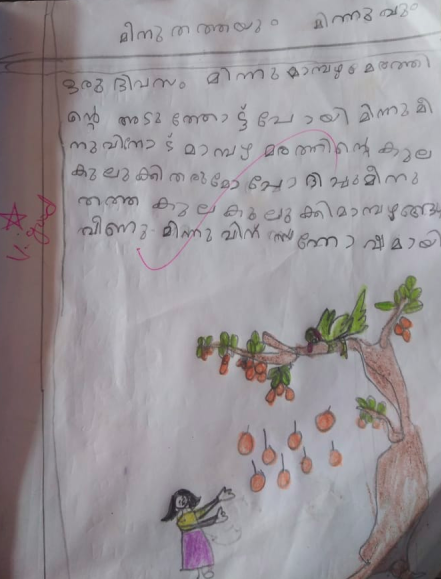 മിന്നുതത്തയും മിന്നുവും
ഒരു ദിവസം മിന്നു മാമ്പഴ മരത്തി
ന്റെ അടുത്തോട്ട് പോയി മിന്നു മി
ന്നുവിനോട് മാമ്പഴ മരത്തിന്റെ കുല
കുലുക്കി തരുമോ ചോദിച്ചു മിന്നു
തത്ത കുല കുലുക്കി മാമ്പഴങ്ങൾ
വീണു മിന്നുവിന് സന്തോഷമായി
V. good